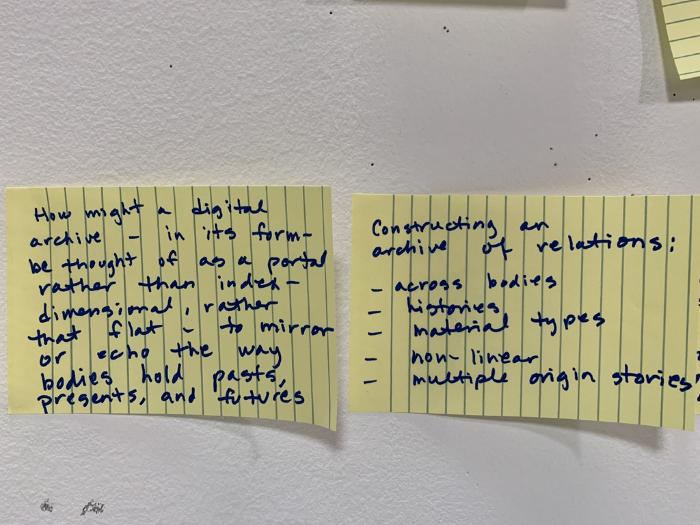 How might a digital
archive – in its form –
be thought of as a portal
rather than index –
dimensional, rather
that flat – to mirror
or echo the way
bodies hold pasts,
presents, and futures
Constructing an
archive of relations:
– across bodies
– histories
– material types
– non-linear
– multiple origin stories